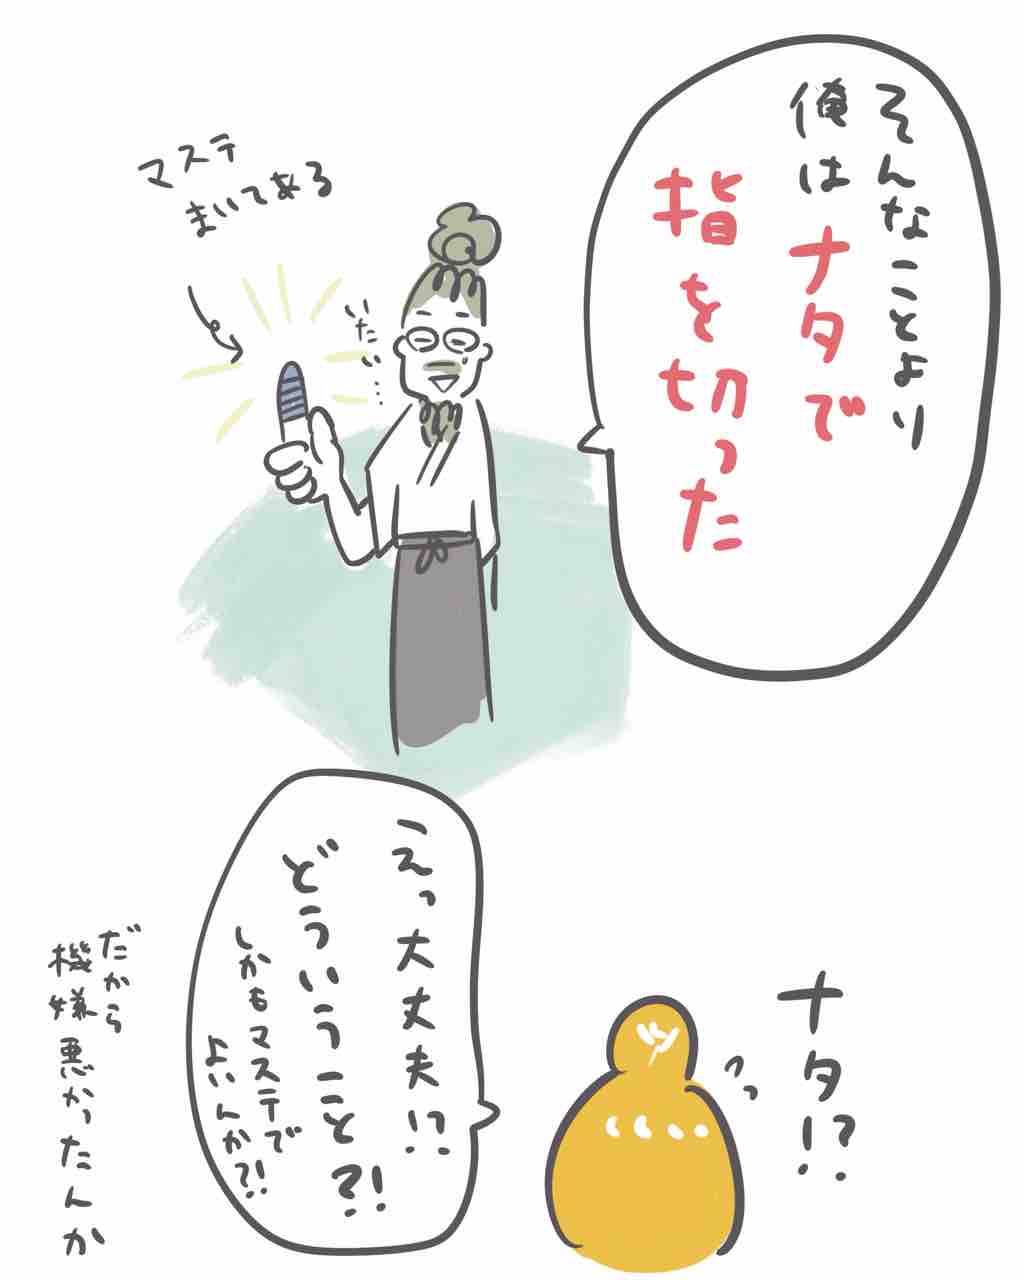 そんなことより
俺はナタで
指を切った
マステ
まいてある
いたい…
ナタ!?
えっ大丈夫!?
どういうこと?!
しかもマステで
よいんか?!
だから
機嫌悪かったんか